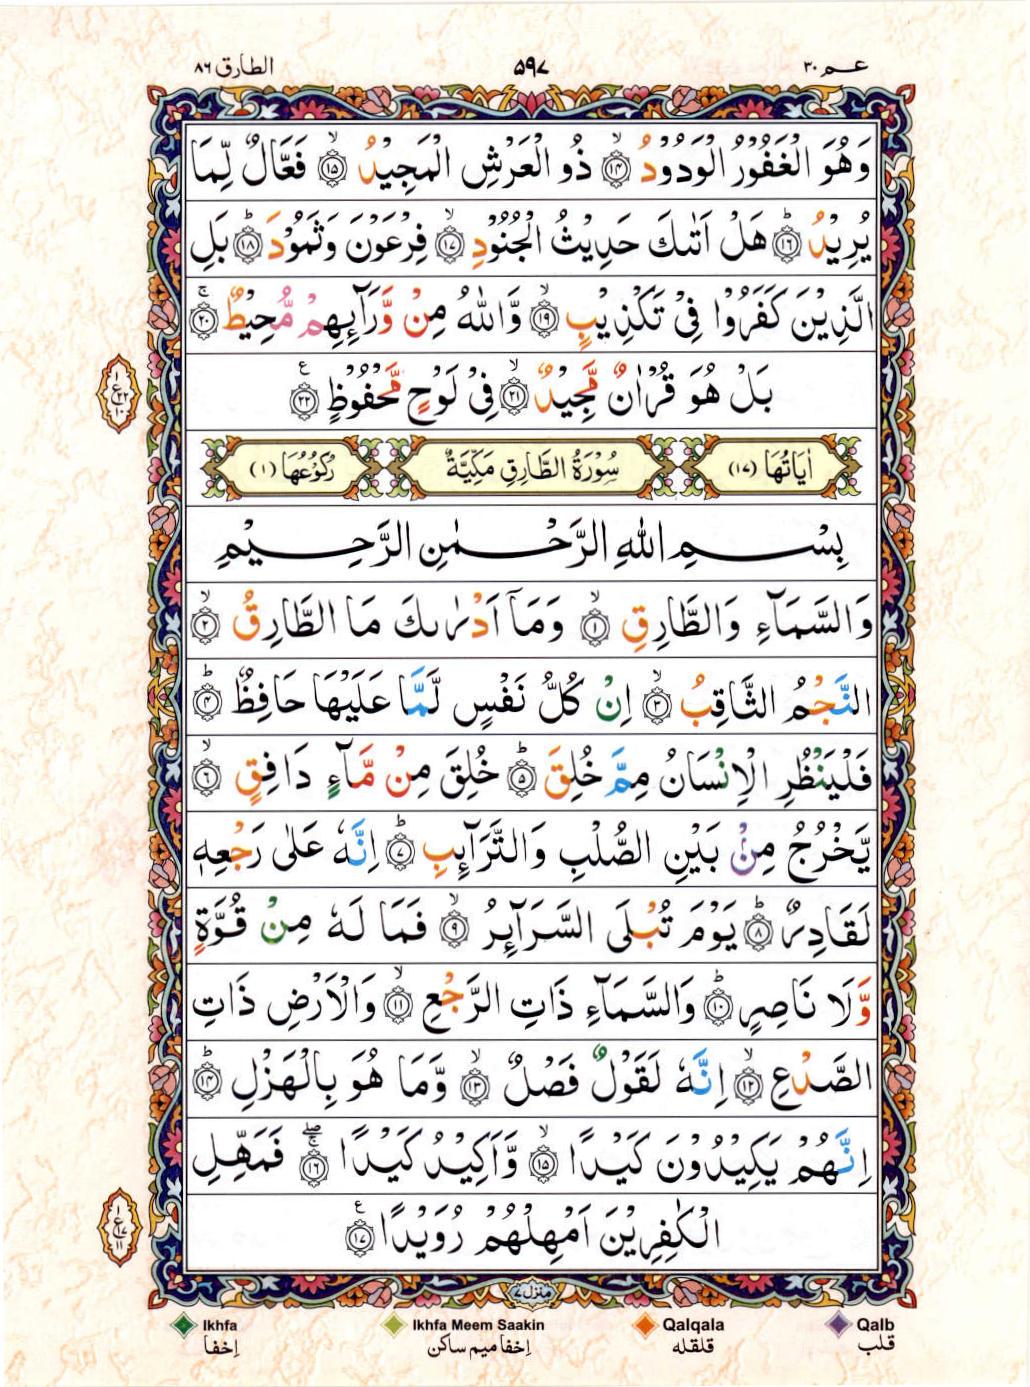 عـم ٣٠
٥٩٧
الطارق ٨٦
وَهُوَ الْغَفُوْرُ الْوَدُوْدُ ﴿١٤﴾ۙ ذُو الْعَرْشِ الْمَجِيْدُ ﴿١٥﴾ۙ فَعَّالٌ لِّمَا
يُرِيْدُ ﴿١٦﴾ؕ هَلْ اَتٰىكَ حَدِيْثُ الْجُنُوْدِ ﴿١٧﴾ۙ فِرْعَوْنَ وَثَمُوْدَ ﴿١٨﴾ؕ بَلِ
الَّذِيْنَ كَفَرُوْا فِيْ تَكْذِيْبٍ ﴿١٩﴾ۙ وَّاللّٰهُ مِنْ وَّرَآئِهِمْ مُّحِيْطٌ ﴿٢٠﴾ۚ
بَلْ هُوَ قُرْاٰنٌ مَّجِيْدٌ ﴿٢١﴾ۙ فِيْ لَوْحٍ مَّحْفُوْظٍ ﴿٢٢﴾ع
اٰيَاتُهَا (١٧) سُوْرَةُ الطَّارِقِ مَكِّيَّةٌ رُكُوْعُهَا (١)
بِسْمِ اللّٰهِ الرَّحْمٰنِ الرَّحِيْمِ
وَالسَّمَآءِ وَالطَّارِقِ ﴿١﴾ۙ وَمَآ اَدْرٰىكَ مَا الطَّارِقُ ﴿٢﴾ۙ
النَّجْمُ الثَّاقِبُ ﴿٣﴾ۙ اِنْ كُلُّ نَفْسٍ لَّمَّا عَلَيْهَا حَافِظٌ ﴿٤﴾ؕ
فَلْيَنْظُرِ الْاِنْسَانُ مِمَّ خُلِقَ ﴿٥﴾ؕ خُلِقَ مِنْ مَّآءٍ دَافِقٍ ﴿٦﴾ۙ
يَّخْرُجُ مِنْۢ بَيْنِ الصُّلْبِ وَالتَّرَآئِبِ ﴿٧﴾ؕ اِنَّهٗ عَلٰى رَجْعِهٖ
لَقَادِرٌ ﴿٨﴾ؕ يَوْمَ تُبْلَى السَّرَآئِرُ ﴿٩﴾ۙ فَمَا لَهٗ مِنْ قُوَّةٍ
وَّلَا نَاصِرٍ ﴿١٠﴾ؕ وَالسَّمَآءِ ذَاتِ الرَّجْعِ ﴿١١﴾ۙ وَالْاَرْضِ ذَاتِ
الصَّدْعِ ﴿١٢﴾ۙ اِنَّهٗ لَقَوْلٌ فَصْلٌ ﴿١٣﴾ۙ وَّمَا هُوَ بِالْهَزْلِ ﴿١٤﴾ؕ
اِنَّهُمْ يَكِيْدُوْنَ كَيْدًا ﴿١٥﴾ۙ وَّاَكِيْدُ كَيْدًا ﴿١٦﴾ۖۚ فَمَهِّلِ
الْكٰفِرِيْنَ اَمْهِلْهُمْ رُوَيْدًا ﴿١٧﴾ع
منزل ٧
Ikhfa Ikhfa Meem Saakin Qalqala Qalb
إخفا إخفا ميم ساكن قلقله قلب